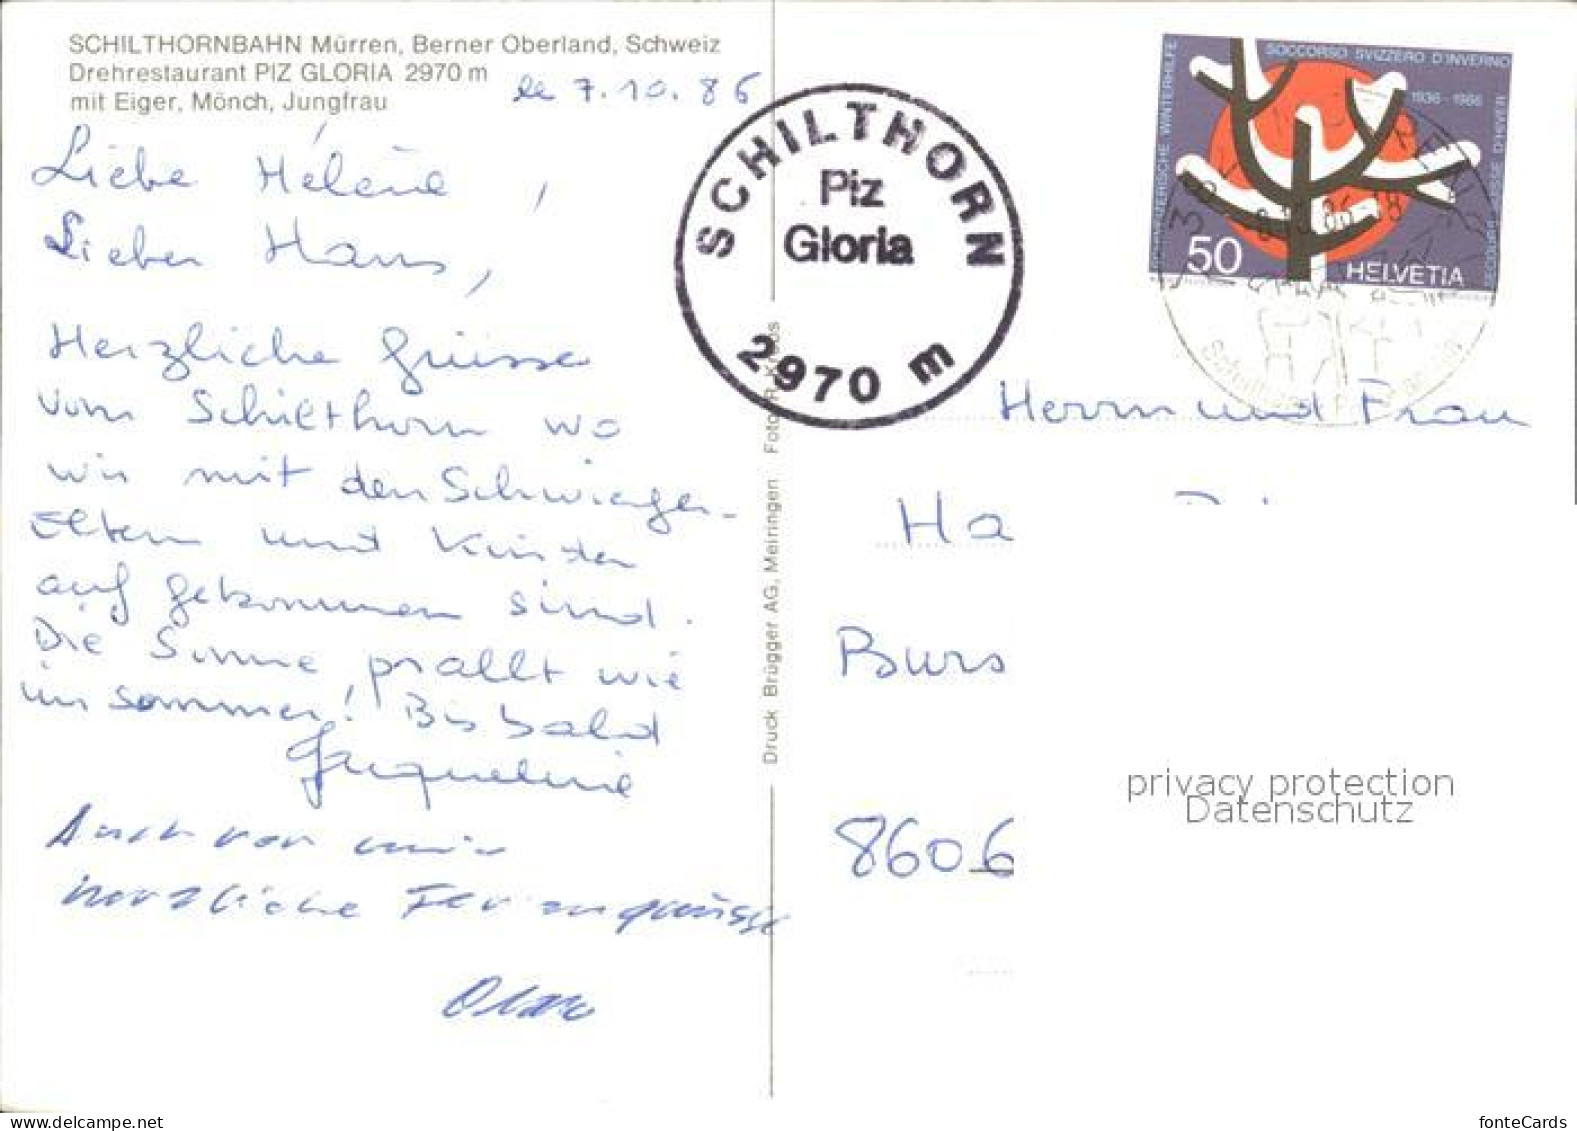 SCHILTHORNBAHN Mürren, Berner Oberland, Schweiz
Drehrestaurant PIZ GLORIA 2970 m
mit Eiger, Mönch, Jungfrau
le 7.10.86
Liebe Hélène,
Lieber Hans,
Herzliche Grüsse
vom Schilthorn wo
wir mit den Schwieger-
Eltern und Kinder
auf gekommen sind.
Die Sonne prallt wie
im Sommer! Bis bald
Jacqueline
Auch von mir
herzliche Feriengrüsse
SCHILTHORN
Piz
Gloria
2970 m
Druck Brügger AG, Meiringen Foto
SCHWEIZERISCHE WINTERHILFE
SOCCORSO SVIZZERO D'INVERNO
1936-1986
SECOURS SUISSE D'HIVER
50
HELVETIA
Herrn und Frau
Ha
Burs
8606
privacy protection
Datenschutz
delcampe.net
fonteCards